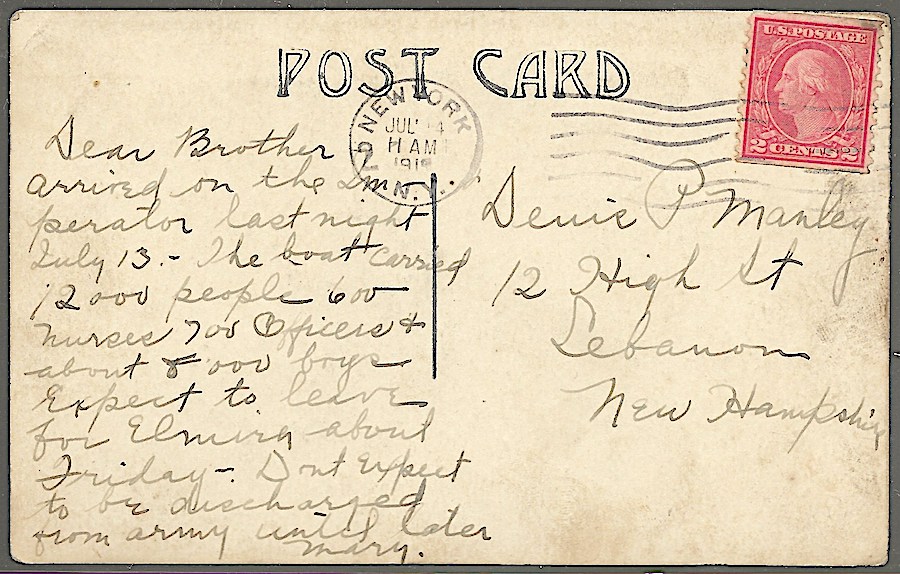 POST CARD
U.S. POSTAGE
2 CENTS 2
NEW YORK
N.Y.
JUL 14
11 AM
1919
Dear Brother
arrived on the Im-
perator last night
July 13.- The boat carried
12000 people 600
nurses 700 Officers &
about 8000 boys
Expect to leave
for Elmira about
Friday-. Dont Expect
to be discharged
from army until later
Mary.
Denis P Manley
12 High St
Lebanon
New Hampshire